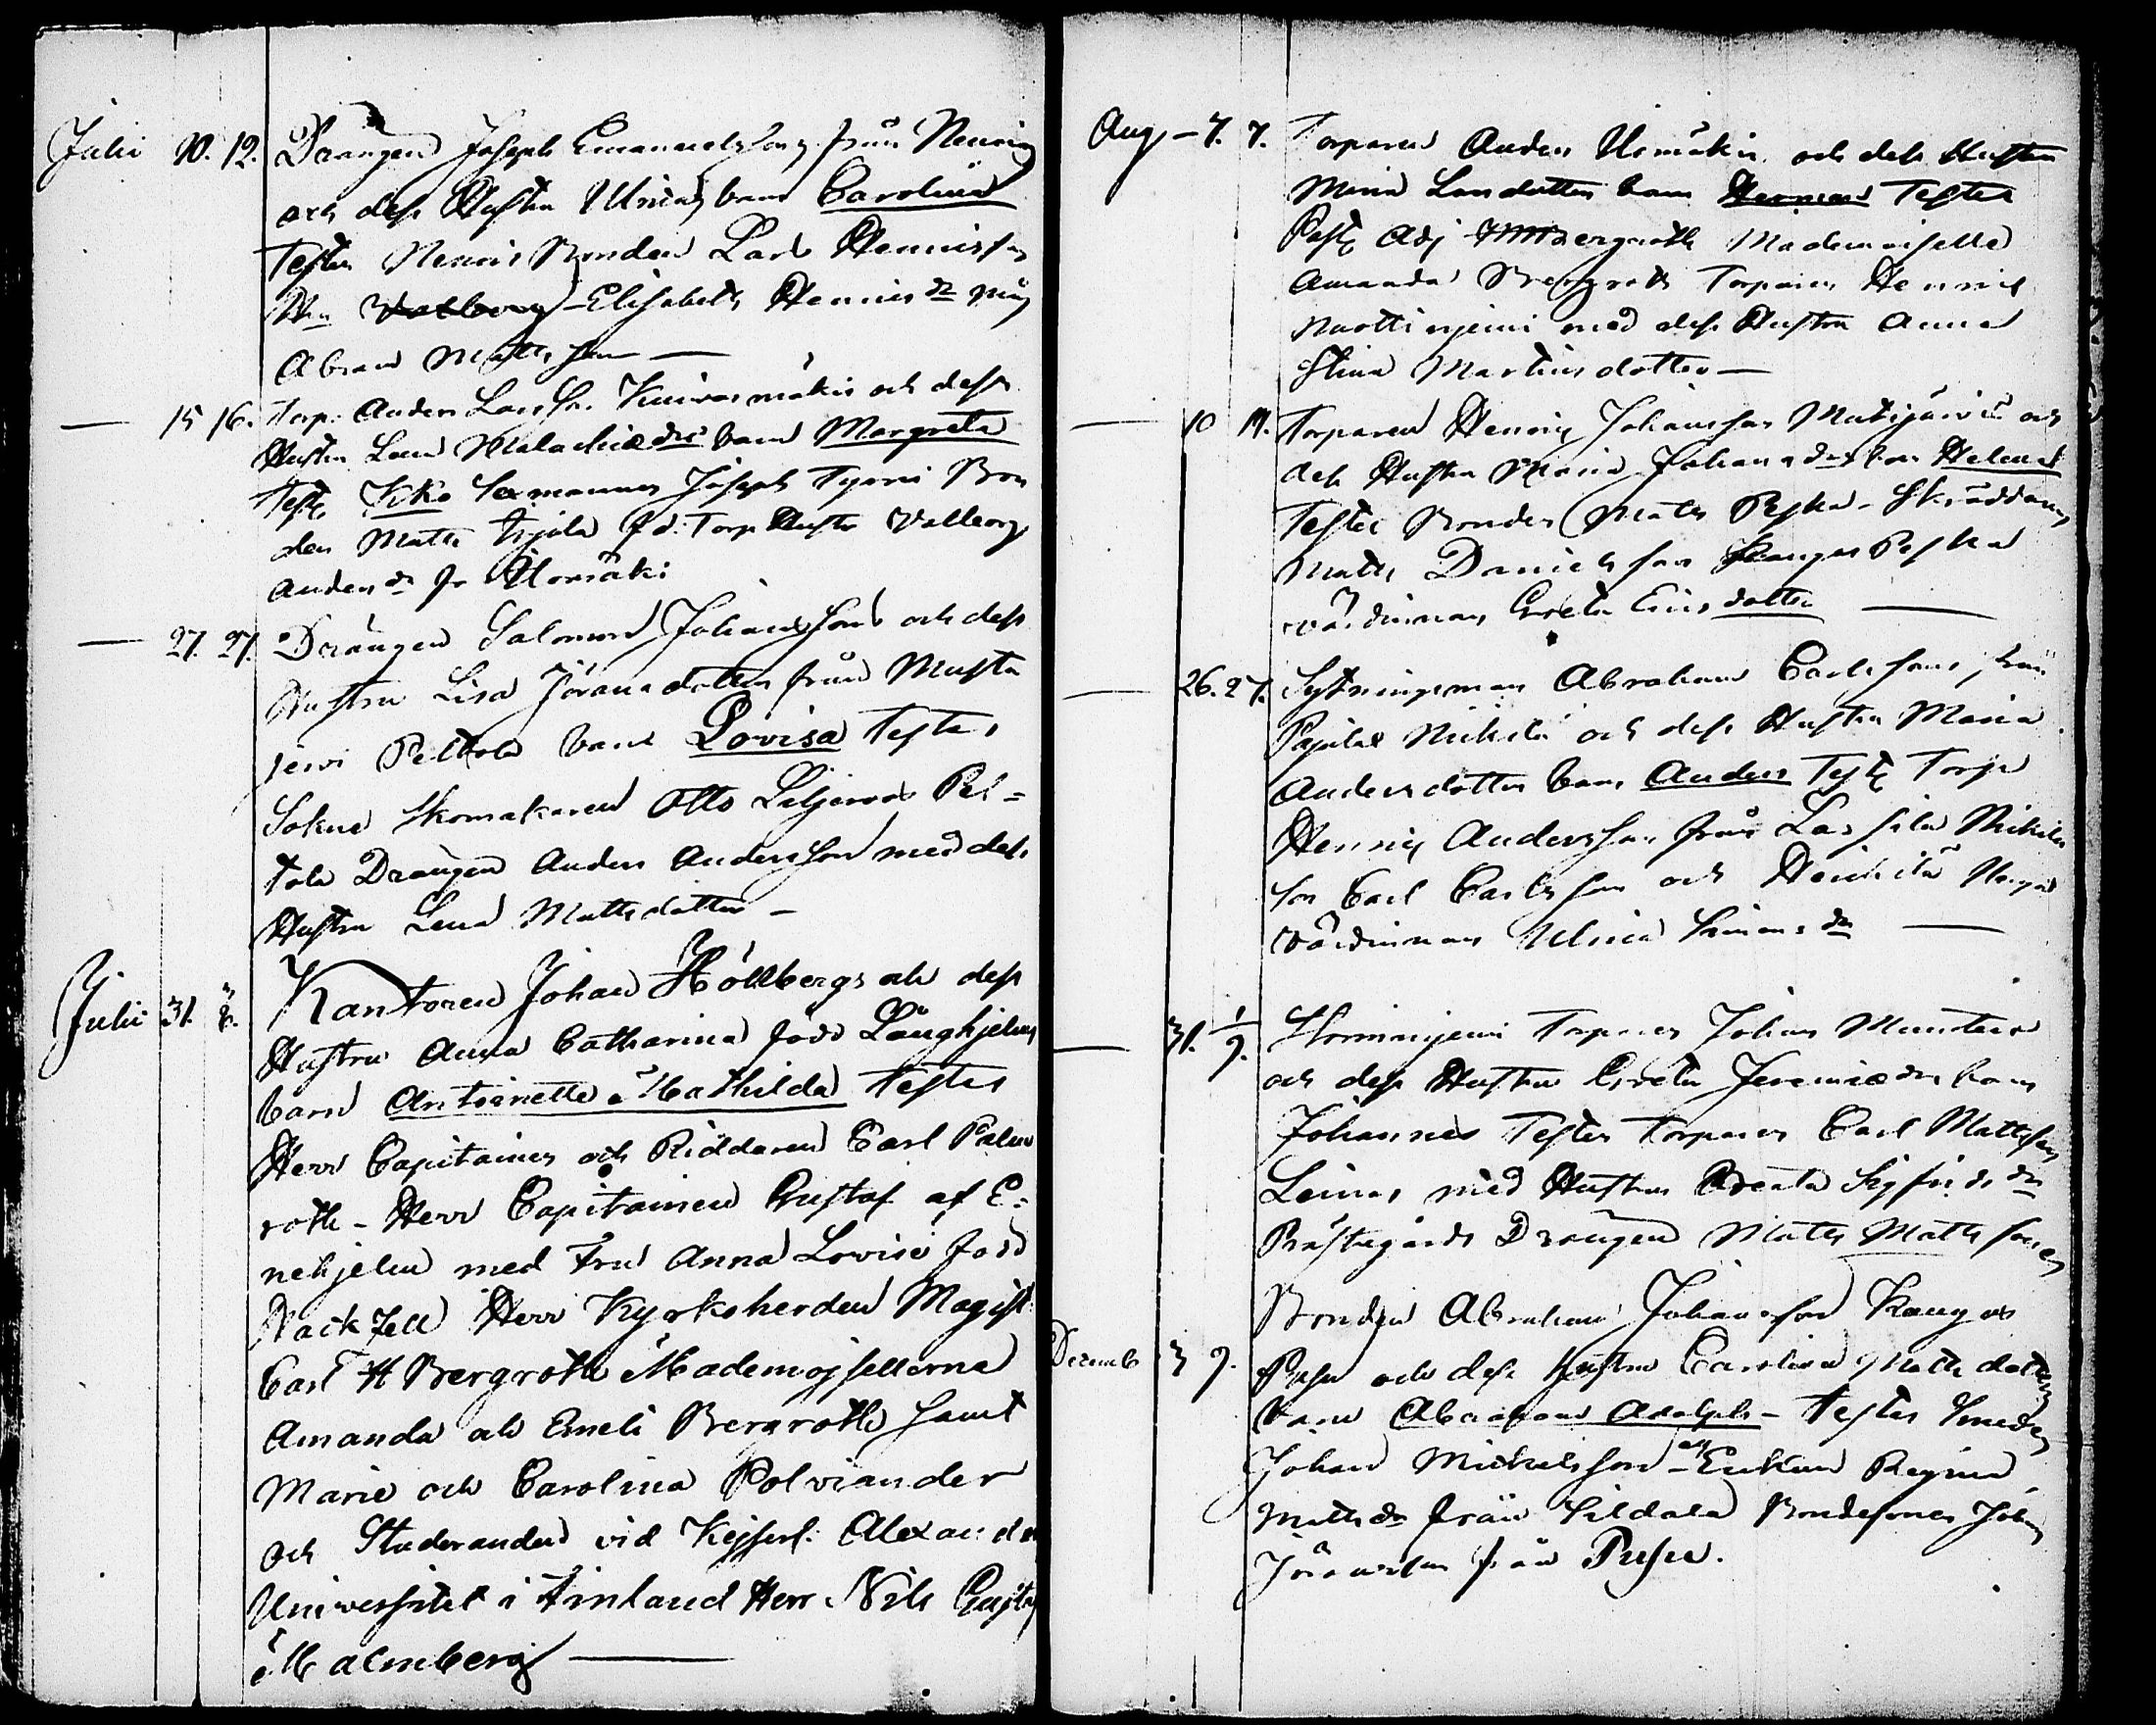 Julii 10. 12. Drängen Joseph Emanuelsson från Nenis
och dess Hustru Ulrica, barn Carolina
Testes Nenis Bonden Lars Hennisson
Hu Valborg Elisabeth Hennis dr
Abram Mattsson —
— 15 16. Torp: Anders Larsson Kuivasmäki och dess
Hustru Lena Malachiædr barn Margreta
Test: Kko Sexmannen Joseph Tyrni Bon
den Matts Torp Hustr Valborg
Anders dr fr
— 27. 27. Drängen Salomon Johansson och dess
Hustru Lisa Jöransdotter från Musta
jervi Peltola barn Lovisa Testes
Sokne Skomakaren Otto Liljeroos Pel=
tola Drängen Anders Andersson med dess
Hustru Lena Mattsdotter —
Julii 31. 3/8. Kantoren Johan Höllberg och dess
Hustru Anna Catharina född Långhjelm
barn Antoinette Mathilda Testes
Herr Capitainen och Riddaren Carl Palm
roth - Herr Capitainen Gustaf af E=
nehjelm med Fru Anna Lovise född
Nackfell Herr Kyrkoherden Magist:
Carl H Bergroth Mademojsellerna
Amanda och Emeli Bergroth samt
Marie och Carolina Polviander
och Studeranden vid Kejserl: Alexanders
Universitet i Finland Herr Nils Gustaf
Malmberg —
Aug — 7. 7. Torparen Anders och dess Hustru
Maria Larsdotter barn Herman Testes
Past: Adj Bergroth Mademoiselle
Amanda Bergroth Torparen Hennic
med dess Hustru Anna
Stina Martinsdotter —
— 10 11. Torparen Henric Johansson Mutijärvi och
dess Hustru Maria Johansdr barn Helena
Testes Bonden Matts Peska - Skräddaren
Matts Danielsson Kangas Peska
värdinnan Greta Ericsdotter —
— 26. 27. Sytningsman Abraham Carlsson, från
Papila Mickilä och dess Hustru Maria
Andersdotter barn Anders Test: Torp
Henric Andersson från Lassila Mickilä
son Carl Carlsson och Heickilä Norgård
värdinnan Ulrica Simons dr —
— 31. 1/9. Torparen Johan
och dess Hustru Greta Jeremiædr barn
Johannes Testes Torparen Carl Mattsson
Leinas med Hustrun Beata Sigfrids dr
Prästegårds Drängen Matts Mattsson
Decemb 3 9. Bonden Abraham Johansson Kangas
Pusa och dess Hustru Carolina Mattsdotter
barn Abraham Adolph - Testes Smeden
Johan Mickelsson och Enkan Regina
Mattsdr från Sildala Bondesonen Johan
Jöransson från Pusa.